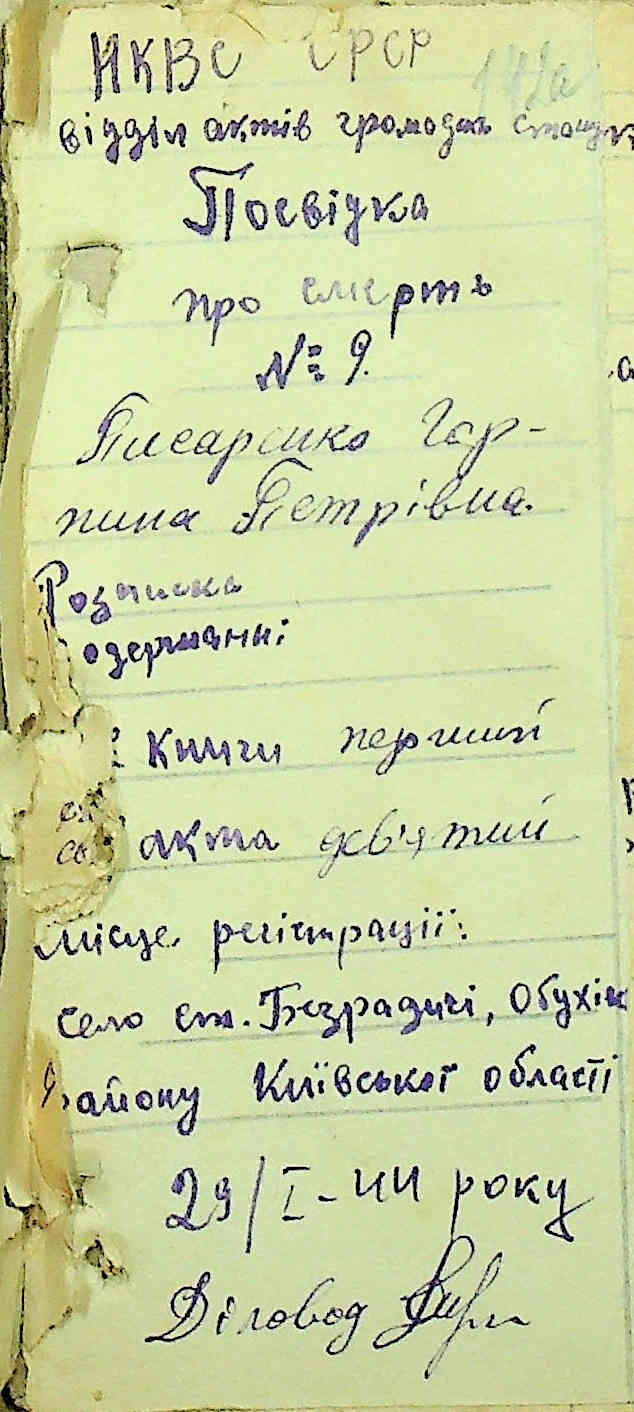 НКВС СРСР
142а
відділ актів громадян стану
Посвідка
про смерть
№ 9.
Писаренко Гар-
пина Петрівна.
Розписка
одержанні
книги перший
акта дев'ятий
Місце реєстрації:
село ст. Безрадичі, Обухів
району Київської області
29/I-44 року
Діловод